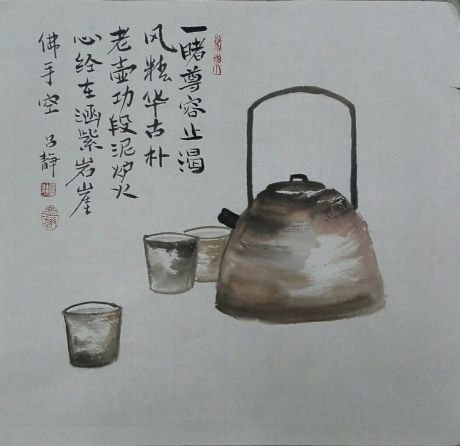 一睹尊容止渴
风华古朴
老壶功段泥炉火
心经在涵紫岩崖
佛手空 吕静